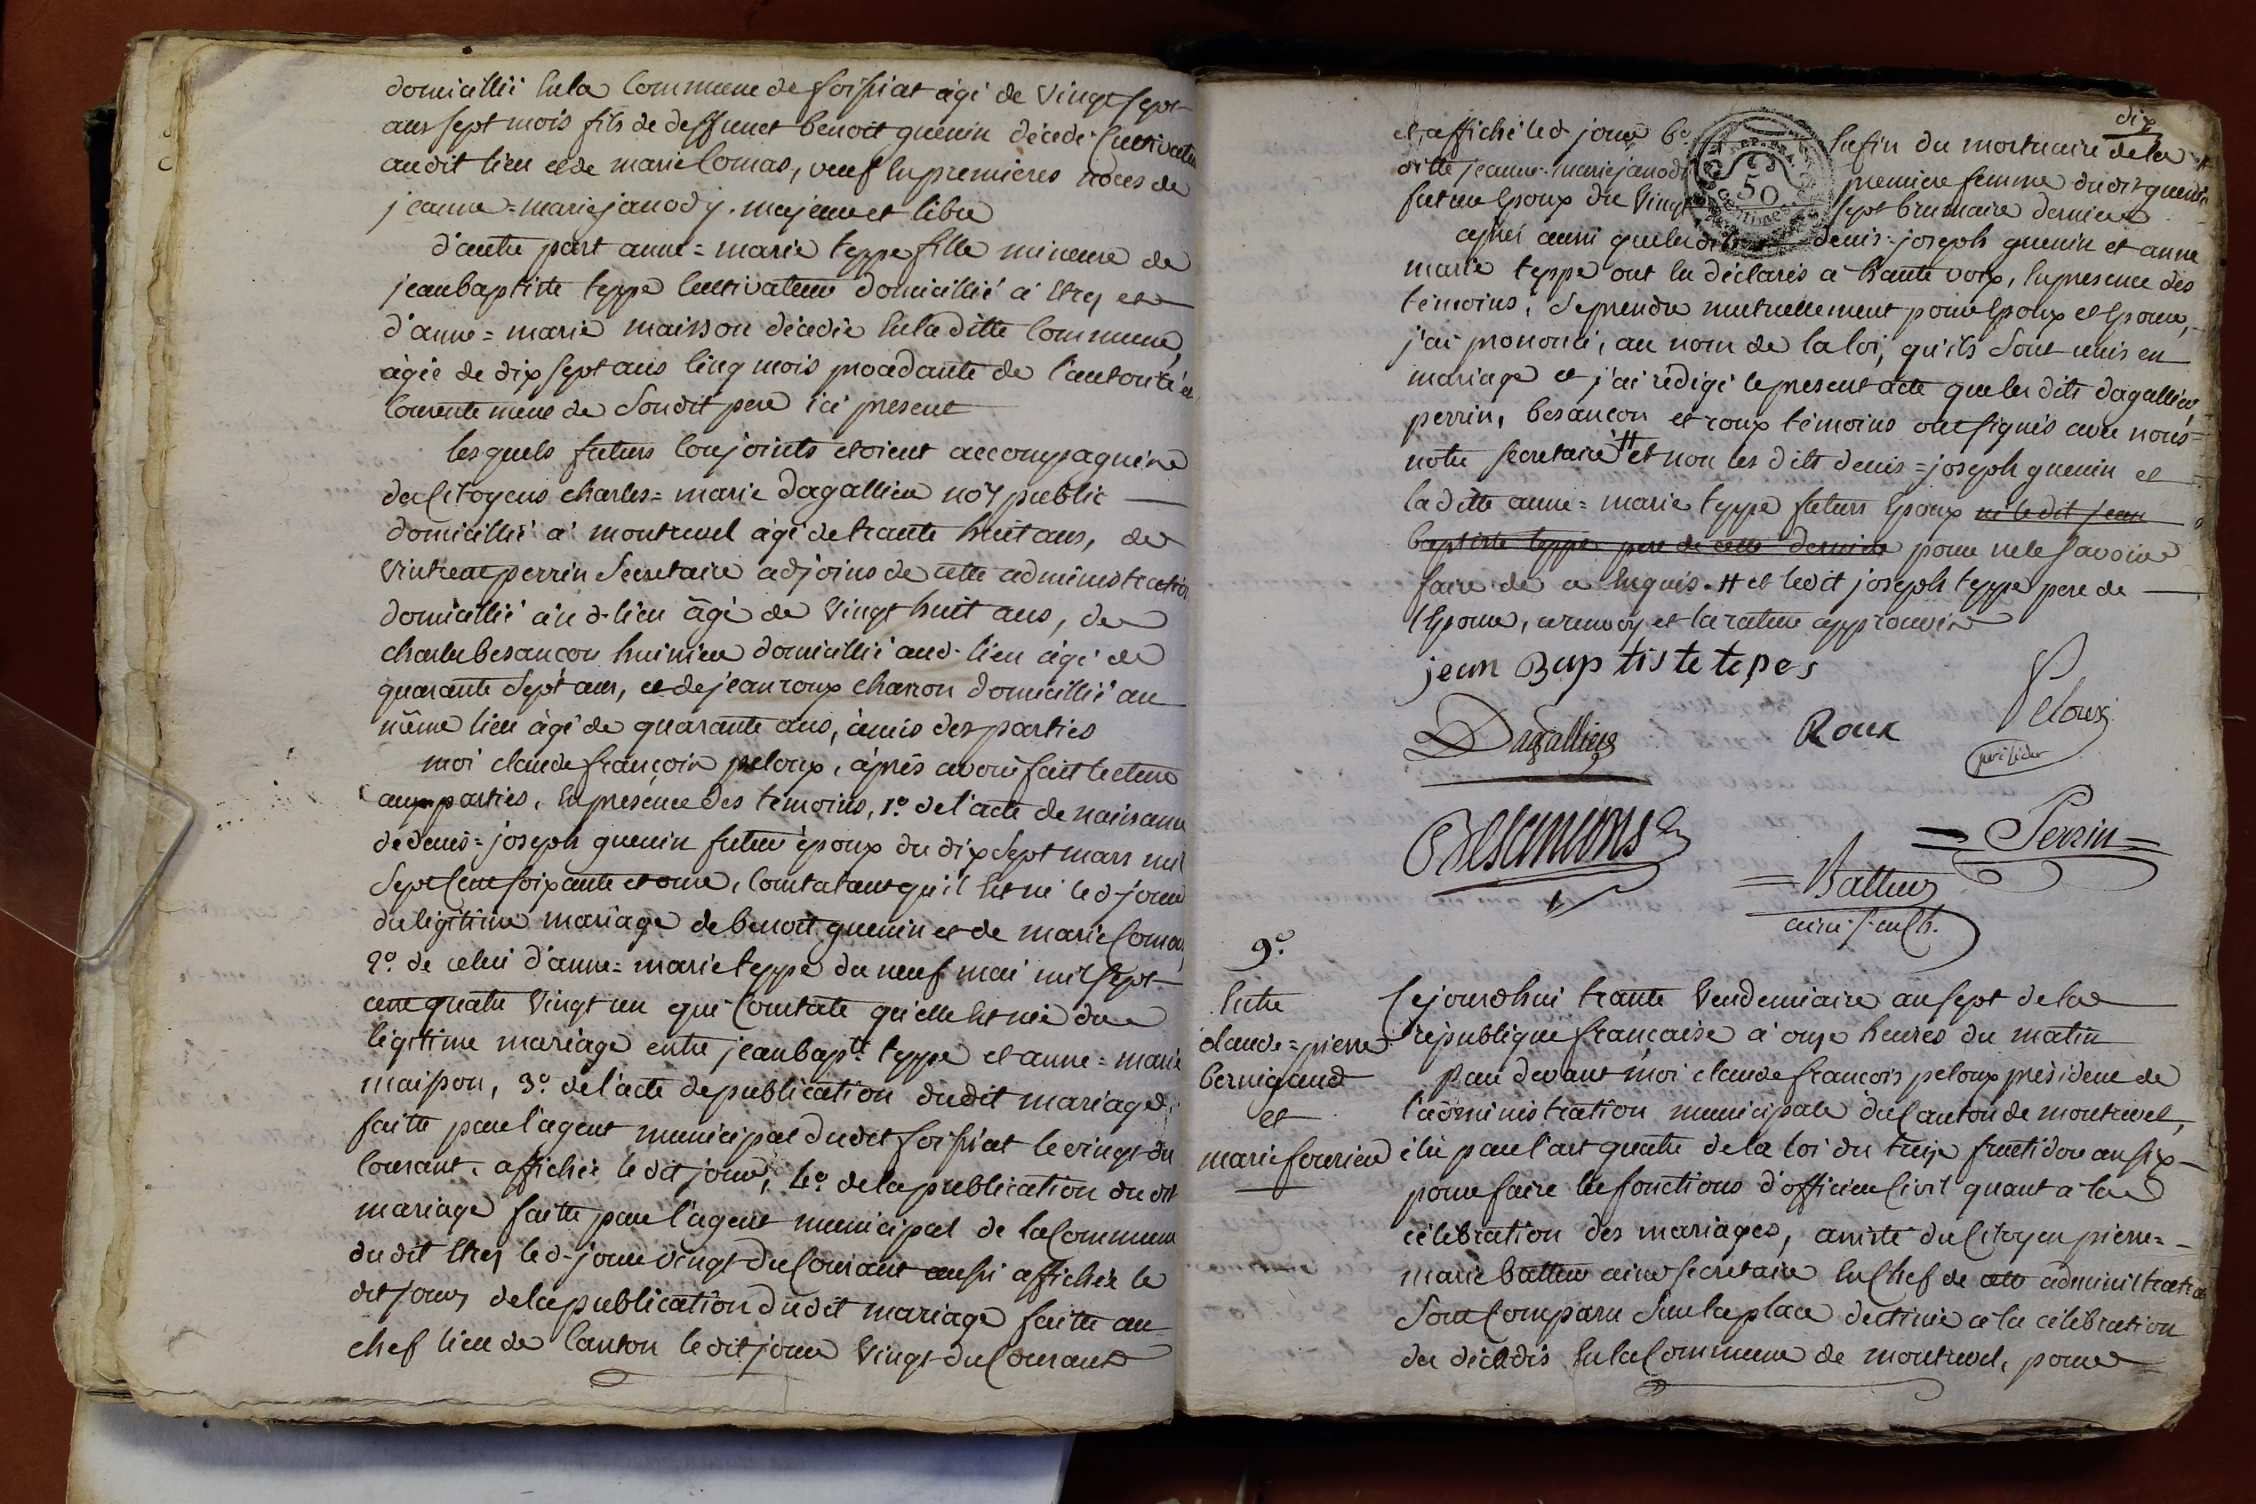 domicillié en la Commune de foissiat agé de vingt sept
ans sept mois fils de deffunct benoit guenin décedé Cultivateur
audit lieu et de marie Comas, veuf en premieres noces de
jeanne=marie janody. majeur et libre
d'autre part anne=marie teppe fille mineure de
jean baptiste teppe Cultivateur domicillié à Etrez et
d'anne=marie maisson décedée en la ditte Commune,
agée de dix sept ans Cinq mois procedante de l'autorité et
Consentement de Son dit pere ici present
les quels futurs Conjoints etoient accompagnés
des Citoyens charles=marie dagallier no.re public
domicillié a montrevel agé de trante huit ans, de
Vintcent perrin Secretaire adjoins de cette administration
domicillié au d. lieu agé de Vingt huit ans, de
charles besancon huissier domicillié aud. lieu agé de
quarante Sept ans, et de jean roux charron domicillié au
même lieu agé de quarante ans, amis des parties
moi claude françois peloux, après avoir fait lecture
aux parties, En présence des témoins, 1.º de l'acte de naissance
de denis=joseph guenin futur époux du dix Sept mars mil
Sept Cent soixante et onze, Constatant qu'il Est né le d. jour
du légitime mariage de benoit guenin et de marie Comas,
2.º de celui d'anne=marie teppe du neuf mai mil Sept
cent quatre Vingt un qui Constate qu'elle Est née du
légitime mariage entre jean bap.te teppe et anne=marie
maisson, 3.º de l'acte de publication dudit mariage,
faitte par l'agent municipal dudit foissiat le vingt du
Courant, affichée le dit jour, 4.º de la publication du dit
mariage faitte par l'agent municipal de la Commune
du dit Etrez le d. jour vingt du Courant aussi affichée le
dit jour, de la publication du dit mariage faitte au
chef lieu de Canton le dit jour Vingt du Courant
dix
et affiché le d. jour 6.º Enfin du mortuaire de la
ditte jeanne=marie janody premiere femme dudit guenin
futur Epoux du Vingt Sept brumaire dernier
50
Centimes
après aussi que les dits denis=joseph guenin et anne
marie teppe ont Eu déclarés a haute voix, En presence des
témoins, Se prendre mutuellement pour Epoux et Epouse,
j'ai prononcé, au nom de la loi, qu'ils Sont unis en
mariage et j'ai rédigé le present acte que les dits dagallier,
perrin, besancon et roux témoins ont signés avec nous=
notre secretaire # et non les dits denis=joseph guenin et
la ditte anne=marie teppe futurs Epoux ni le dit jean
baptiste teppe pere de cette derniere pour ne le savoir
faire de ce Enquis. # et ledit joseph teppe pere de
l'Epouse, ce renvoy et la rature approuvés
jean Baptiste tepes
Peloux
président
Dagallier
Roux
Besancons
=Perrin=
=Battur
ainé S. en Ch.
9.º
Entre
claude=pierre
bernigaud
et
marie fourier
Cejourdhui trante Vendemiaire an sept de la
république française à onze heures du matin
par devant moi claude françois peloux président de
l'administration municipale du Canton de montrevel,
élu par l'art quatre de la loi du treize fructidor an six
pour faire les fonctions d'officier Civil quant à la
célébration des mariages, assisté du Citoyen pierre=
marie battur ainé secretaire En Chef de cette administration
Sont Comparu Sur la place destinée à la célébration
des décadis En la Commune de montrevel, pour